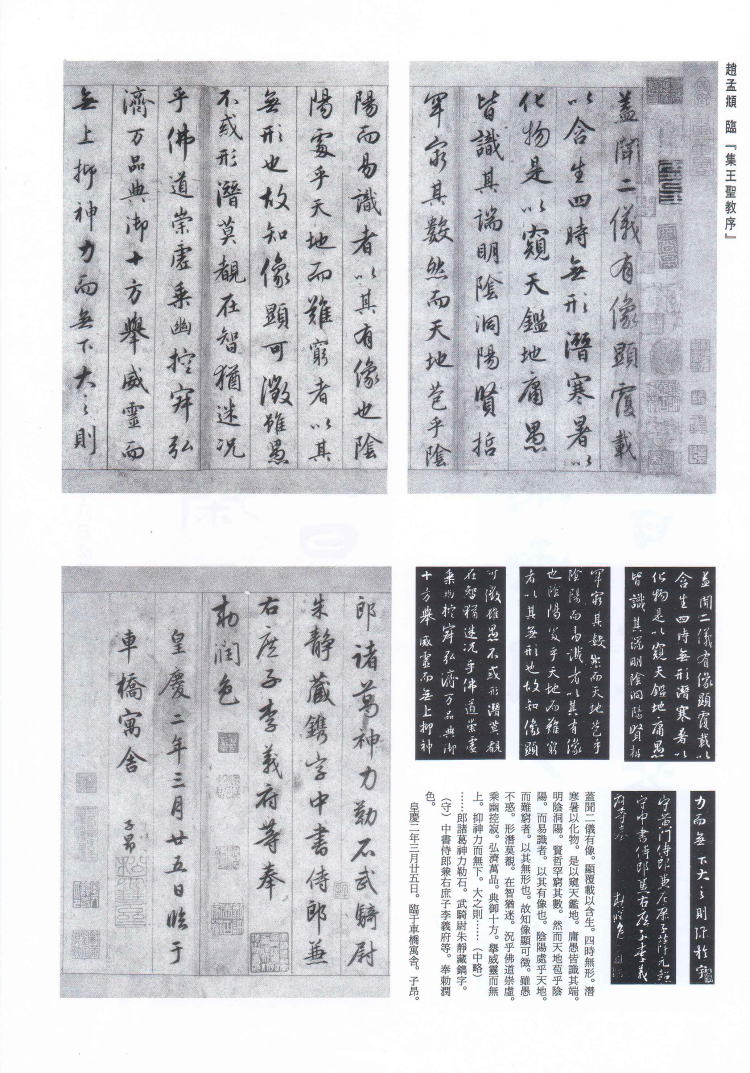 趙孟頫 臨『集王聖教序』
蓋聞二儀有像顯覆載
以含生四時無形潛寒暑以
化物是以窺天鑑地庸愚
皆識其端明陰洞陽賢哲
罕窮其數然而天地苞乎陰
陽而易識者以其有像也陰
陽處乎天地而難窮者以其
無形也故知像顯可徵雖愚
不惑形潛莫覩在智猶迷况
乎佛道崇虛乘幽控寂弘
濟万品典御十方舉威靈而
無上抑神力而無下大之則
蓋聞二儀有像顯覆載以
含生四時無形潛寒暑以
化物是以窺天鑑地庸愚
皆識其端明陰洞陽賢哲
罕窮其數然而天地苞乎
陰陽而易識者以其有像
也陰陽處乎天地而難窮
者以其無形也故知像顯
可徵雖愚不惑形潛莫覩
在智猶迷况乎佛道崇虛
乘幽控寂弘濟万品典御
十方舉威靈而無上抑神
力而無下大之則弥於宙
守黃門侍郎兼左庶子薛元超
守中書侍郎兼右庶子李義
府等奉 勅潤色
郎諸葛神力勒石武騎尉
朱靜藏鐫字中書侍郎兼
右庶子李義府等奉
勅潤色
皇慶二年三月廿五日臨于
車橋寓舍 子昂
蓋聞二儀有像。顯覆載以含生。四時無形。潛
寒暑以化物。是以窺天鑑地。庸愚皆識其端。
明陰洞陽。賢哲罕窮其數。然而天地苞乎陰
陽。而易識者。以其有像也。陰陽處乎天地。
而難窮者。以其無形也。故知像顯可徵。雖愚
不惑。形潛莫覩。在智猶迷。況乎佛道崇虛。
乘幽控寂。弘濟萬品。典御十方。舉威靈而無
上。抑神力而無下。大之則……(中略)
……郎諸葛神力勒石。武騎尉朱靜藏鐫字。
(守)中書侍郎兼右庶子李義府等。奉勅潤
色。
皇慶二年三月廿五日。臨于車橋寓舍。子昂。